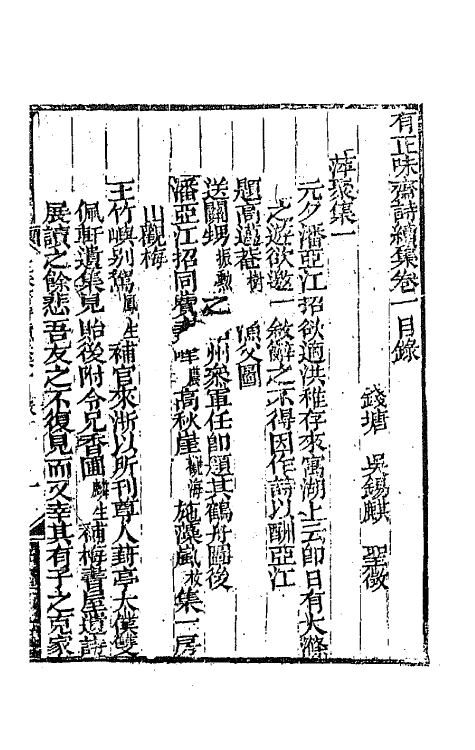 有正味齋詩續集卷一目錄
錢塘 吳錫麒 聖徵
萍聚集一
元夕潘亞江招飲適洪稚存來寓湖上云即日有大滌
之遊欲邀一敘辭之不得因作詩以酬亞江
題高邁菴樹 漁父圖
送關甥振勲之 州叅軍任即題其鶴舟圖後
潘亞江招同 農高秋崖 海施藻風 集一房
山觀梅
王竹嶼別駕鳳生補官來浙以所刊尊人葑亭太僕雙
佩軒遺集見貽後附令兄香圃麟生補梅書屋遺詩
展讀之餘悲吾友之不復見而又幸其有子之克家